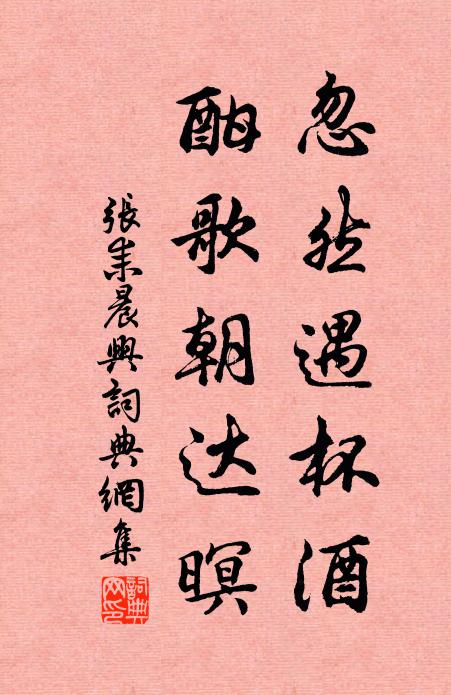 忽然遇杯酒
酣歌朝达暝
張耒晨興詞典網集
詞典
网